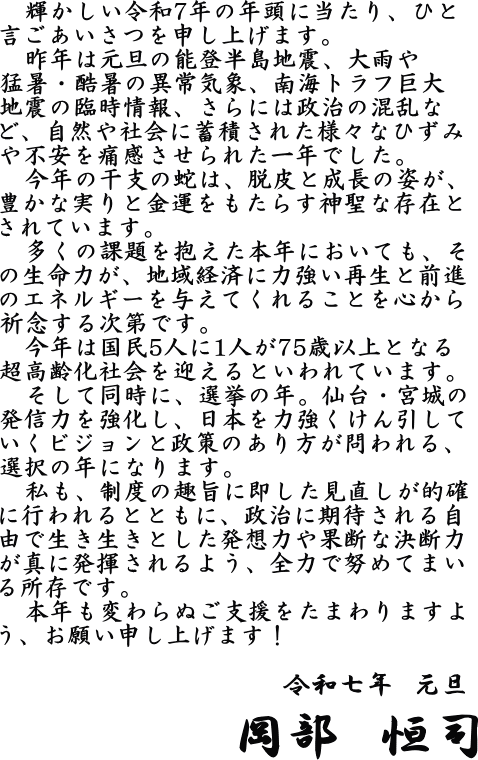 輝かしい令和7年の年頭に当たり、ひと
言ごあいさつを申し上げます。
昨年は元旦の能登半島地震、大雨や
猛暑・酷暑の異常気象、南海トラフ巨大
地震の臨時情報、さらには政治の混乱な
ど、自然や社会に蓄積された様々なひずみ
や不安を痛感させられた一年でした。
今年の干支の蛇は、脱皮と成長の姿が、
豊かな実りと金運をもたらす神聖な存在と
されています。
多くの課題を抱えた本年においても、そ
の生命力が、地域経済に力強い再生と前進
のエネルギーを与えてくれることを心から
祈念する次第です。
今年は国民5人に1人が75歳以上となる
超高齢化社会を迎えるといわれています。
そして同時に、選挙の年。仙台・宮城の
発信力を強化し、日本を力強くけん引して
いくビジョンと政策のあり方が問われる、
選択の年になります。
私も、制度の趣旨に即した見直しが的確
に行われるとともに、政治に期待される自
由で生き生きとした発想力や果断な決断力
が真に発揮されるよう、全力で努めてまい
る所存です。
本年も変わらぬご支援をたまわりますよ
う、お願い申し上げます！
令和七年 元旦
岡部 恒司